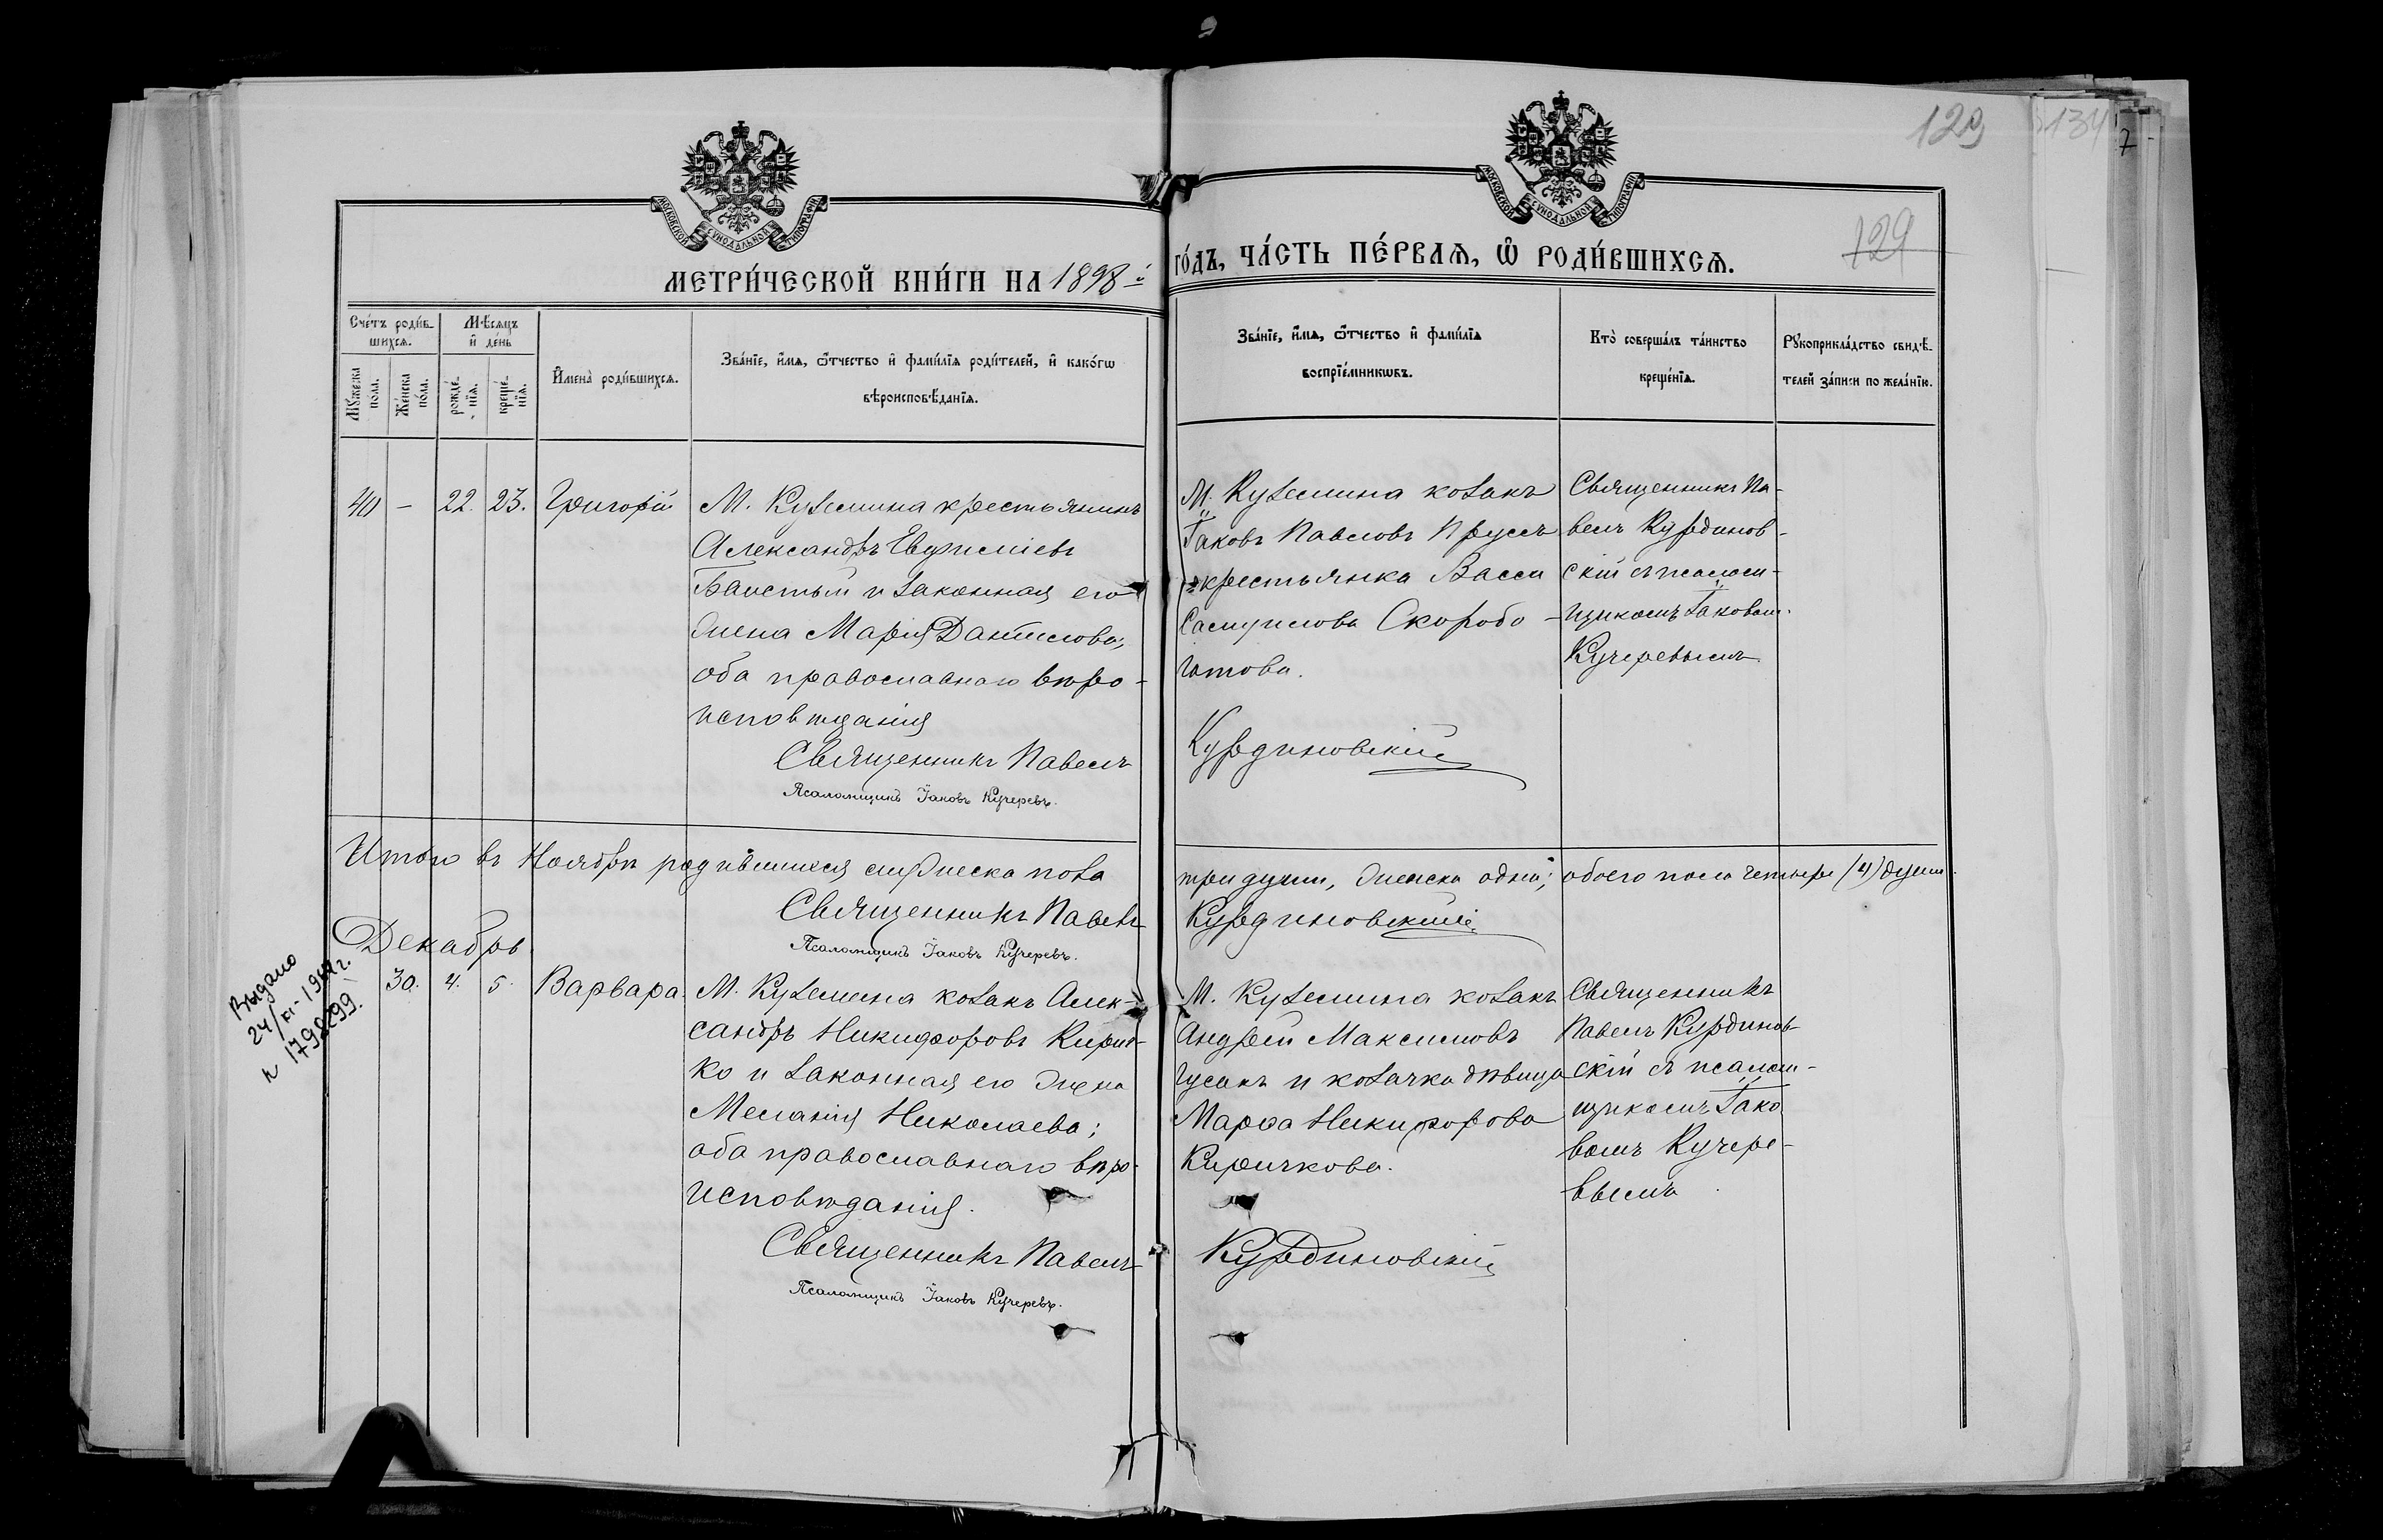 129
134
7
МОСКОВСКОЙ СѴНОДАЛЬНОЙ ТИПОГРАФІИ
МОСКОВСКОЙ СѴНОДАЛЬНОЙ ТИПОГРАФІИ
129
МЕТРИ́ЧЕСКОЙ КНИ́ГИ НА 1898 й
ГО́ДЪ, ЧА́СТЬ ПЕ́РВАѦ, Ѡ҆ РОДИ́ВШИХСѦ.
Сче́тъ роди́в-
шихсѧ.
Мѣ́сѧцъ
и҆ де́нь
Мꙋ́жеска
по́ла.
Же́нска
по́ла.
рожде́-
нїѧ.
креще́-
нїѧ.
И҆мена̀ роди́вшихсѧ.
Зва́нїе, и҆́мѧ, ѻ҆́тчество и҆ фами́лїѧ роди́телей, и҆ како́гѡ
вѣроисповѣ́данїѧ.
Зва́нїе, и҆́мѧ, ѻ҆́тчество и҆ фами́лїѧ
воспрїе́мникѡвъ.
Кто̀ соверша́лъ та́инство
креще́нїѧ.
Рꙋкоприкла́дство свидѣ́-
телей за́писи по жела́нїю.
40 – 22. 23. Григорій
М. Куземина крестьянинъ
Александръ Евфиміевъ
и законная его
жена Марія Даніилова,
оба православнаго вѣро-
исповѣданія
Священникъ Павелъ
Псаломщикъ Іаковъ Кучеревъ.
М. Куземина козакъ
Іаковъ Павловъ Прусъ
и крестьянка Васса
Самуилова Скоробо-
гатова.
Курдиновскій
Священникъ Па-
велъ Курдинов-
скій съ псалом-
щикомъ Іаковом.
Кучеревымъ
Итого въ Ноябрѣ родившихся мужеска пола
три души, женска одна; обоего пола четыре (4) души.
Священникъ Павелъ
Курдиновскій
Псаломщикъ Іаковъ Кучеревъ.
Декабрь.
Выдано
30. 4. 5. Варвара.
М. Куземина козакъ Алек-
сандръ Никифоровъ Кирич-
ко и законная его жена
Меланія Николаева;
оба православнаго вѣро-
исповѣданія.
Священникъ Павелъ
Псаломщикъ Іаковъ Кучеревъ.
М. Куземина козакъ
Андрей Максимовъ
Гусакъ и козачка дѣвица
Марѳа Никифорова
Киричкова.
Курдиновскій
Священникъ
Павелъ Курдинов-
скій съ псалом-
щикомъ Іако
вомъ Кучере-
вымъ